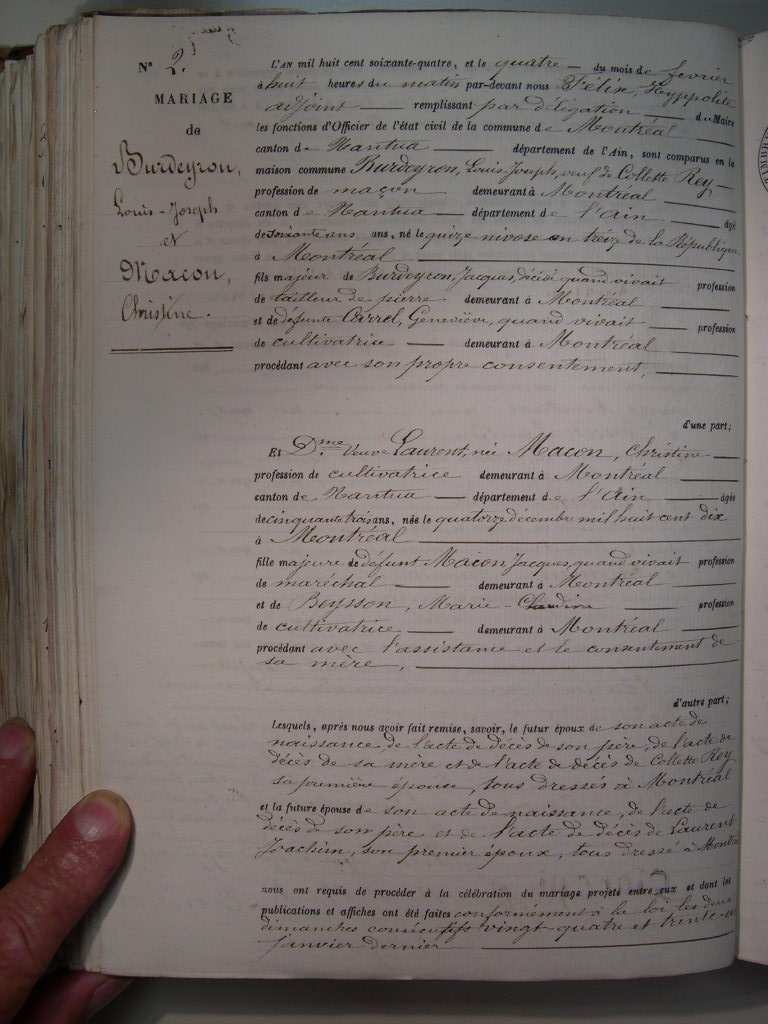 N° 2.
MARIAGE
de
Burdeyron,
Louis-Joseph
et
Macon,
Christine.
L'AN mil huit cent soixante-quatre, et le quatre du mois de février
à huit heures du matin par-devant nous Félix, Hyppolite
adjoint remplissant par délégation du Maire
les fonctions d'Officier de l'état civil de la commune de Montréal
canton de Nantua département de l'Ain, sont comparus en la
maison commune Burdeyron, Louis Joseph, veuf de Collette Rey
profession de maçon demeurant à Montréal
canton de Nantua département de l'ain âgé
de soixante ans ans, né le quize nivose an treize de la République
à Montréal
fils majeur de Burdeyron, Jacques, décédé quand vivait profession
de tailleur de pierre demeurant à Montréal
et de défunte Carrel, Geneviève, quand vivait profession
de cultivatrice demeurant à Montréal
procédant avec son propre consentement,
d'une part;
Et Dme Veuve Laurent, née Macon, Christine
profession de cultivatrice demeurant à Montréal
canton de Nantua département de l'ain âgée
de cinquante trois ans, née le quatorze décembre mil huit cent dix
à Montréal
fille majeure de défunt Macon Jacques, quand vivait profession
de maréchal demeurant à Montréal
et de Beysson, Marie-Claudine profession
de cultivatrice demeurant à Montréal
procédant avec l'assistance et le consentement de
sa mère,
d'autre part;
Lesquels, après nous avoir fait remise, savoir, le futur époux de son acte de
naissance, de l'acte de décès de son père, de l'acte de
décès de sa mère et de l'acte de décès de Collette Rey
sa première épouse, tous dressés à Montréal
et la future épouse de son acte de naissance, de l'acte de
décès de son père et de l'acte de décès de Laurent
Joachim, son premier époux, tous dressé à Montréal
nous ont requis de procéder à la célébration du mariage projeté entre eux et dont les
publications et affiches ont été faites conformément à la loi les deux
dimanches consécutifs vingt quatre et trente-un
janvier dernier